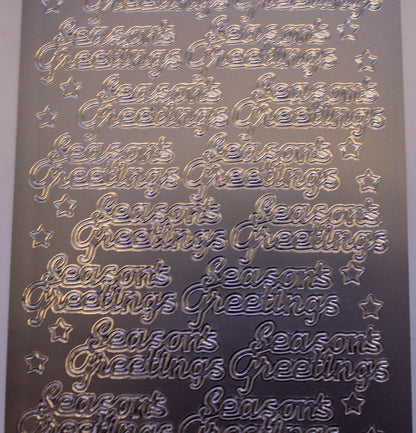 Greetings Greetings
Season's Season's
Greetings Greetings
Season's Season's
Greetings Greetings
Season's Season's
Greetings Greetings
Season's Season's
Greetings Greetings
Season's Season's
Greetings Greetings
Season's Season's
Greetings Greetings
Season's Season's
Greetings Greetings